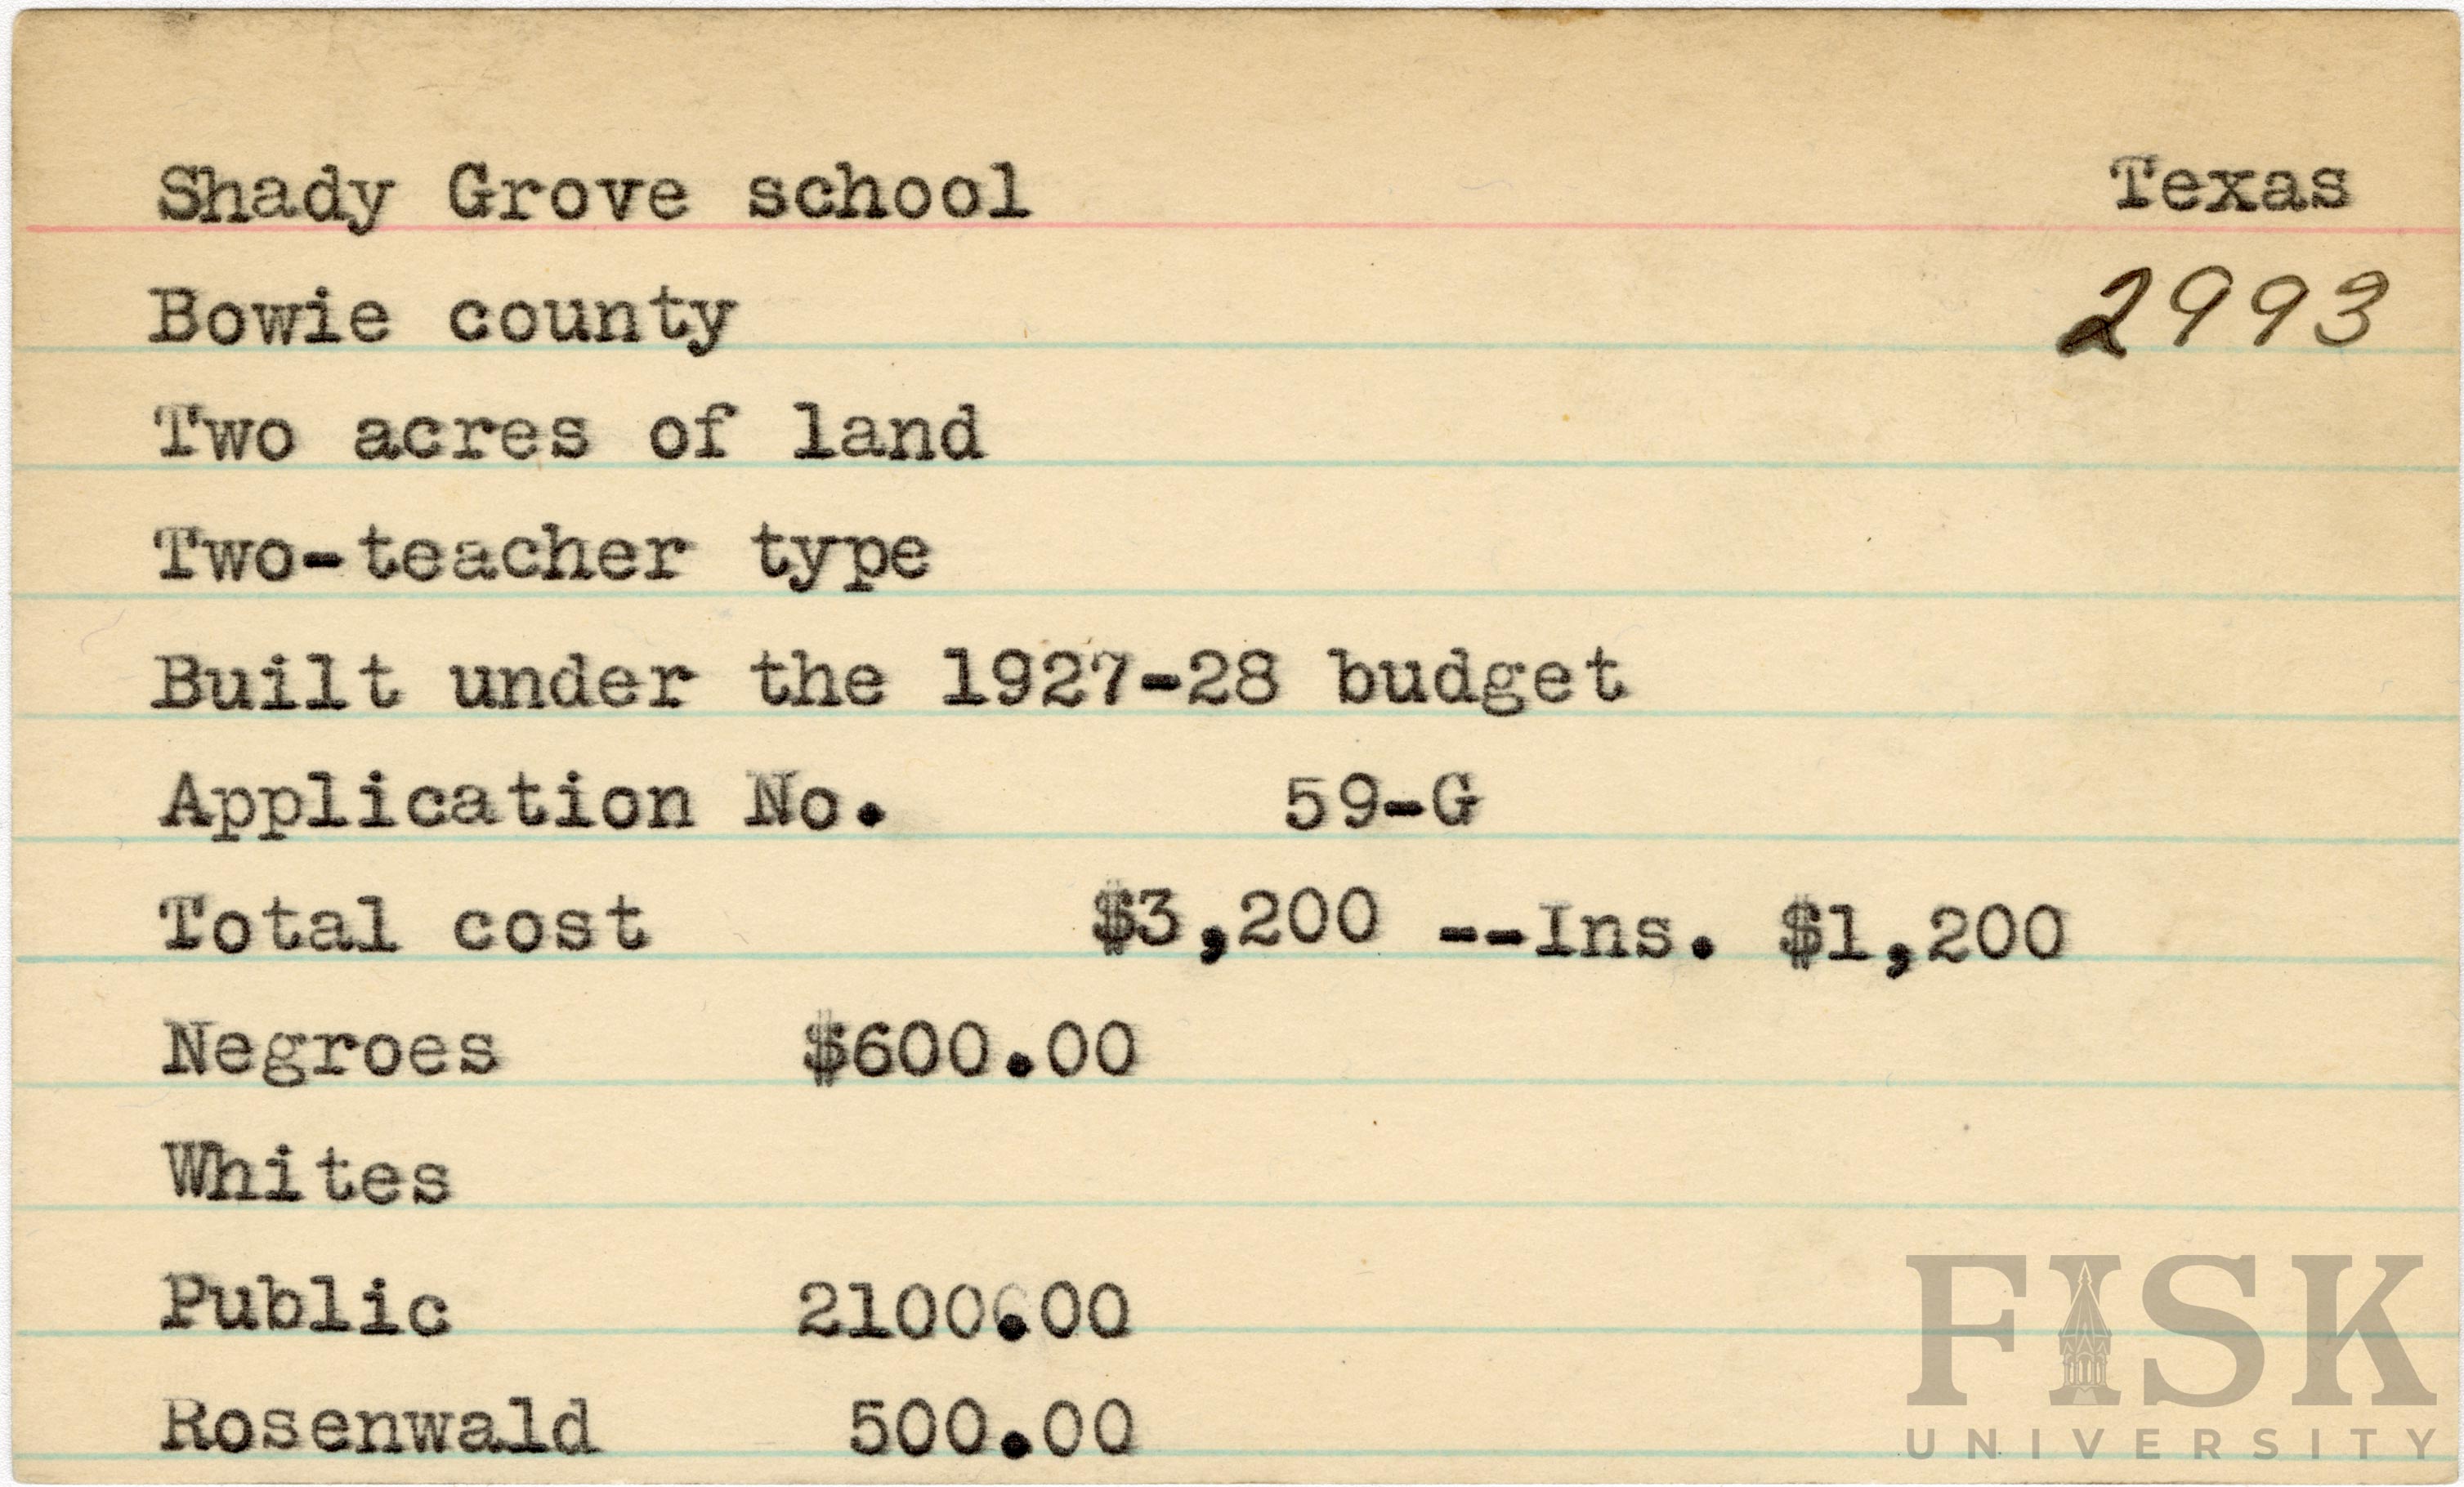 Shady Grove school Texas
Bowie county 2993
Two acres of land
Two-teacher type
Built under the 1927-28 budget
Application No. 59-G
Total cost $3,200 --Ins. $1,200
Negroes $600.00
Whites
Public 2100.00
Rosenwald 500.00
FISK
UNIVERSITY